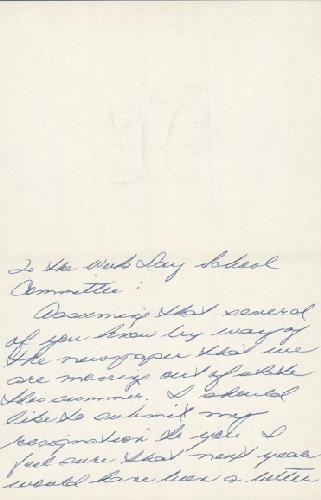 To the Week Day School
Committee:
Assuming that several
of you know by way of
the newspaper that we
are moving out of state
this summer. I should
like to submit my
resignation to you. I
feel sure that next year
would have been a better